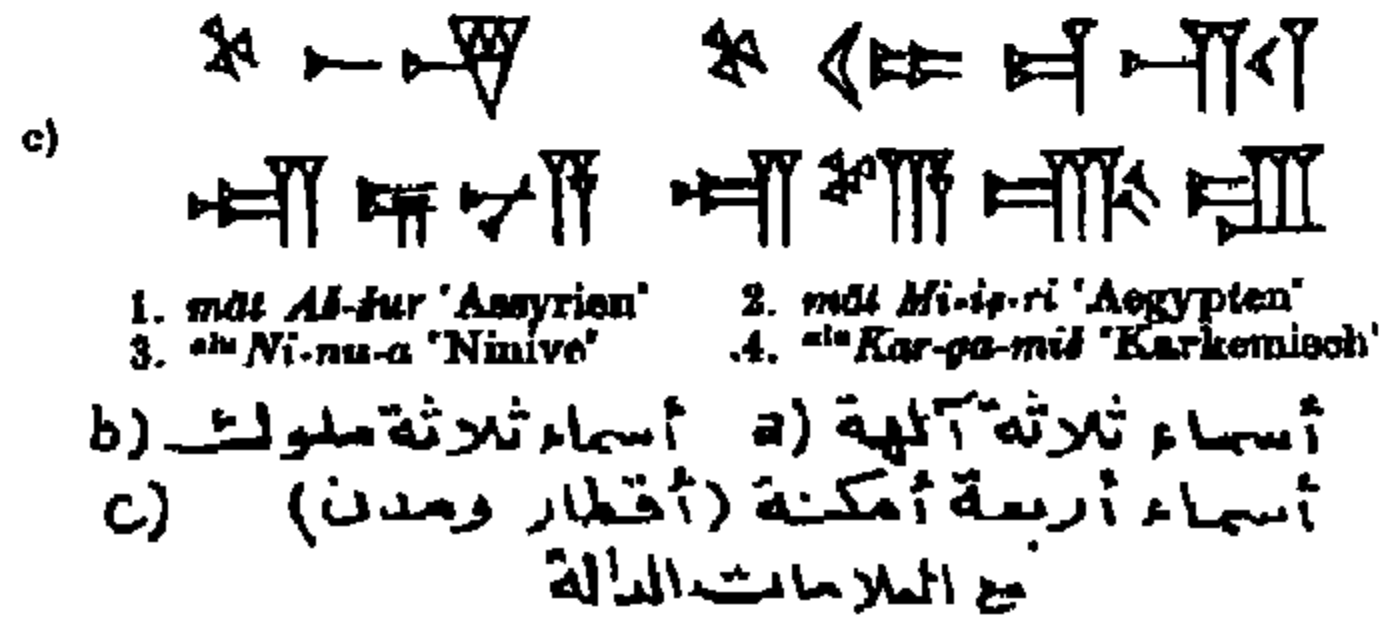 c)
1. māt Aš-šur 'Assyrien' 2. māt Mi-iṣ-ri 'Aegypten'
3. alu Ni-nu-a 'Ninive' .4. alu Kar-ga-miš 'Karkemisch'
أسماء ثلاثة آلهة (a أسماء ثلاثة ملوك (b
أسماء أربعة أمكنة (أقطار ومدن) (c
مع العلامات الدالة